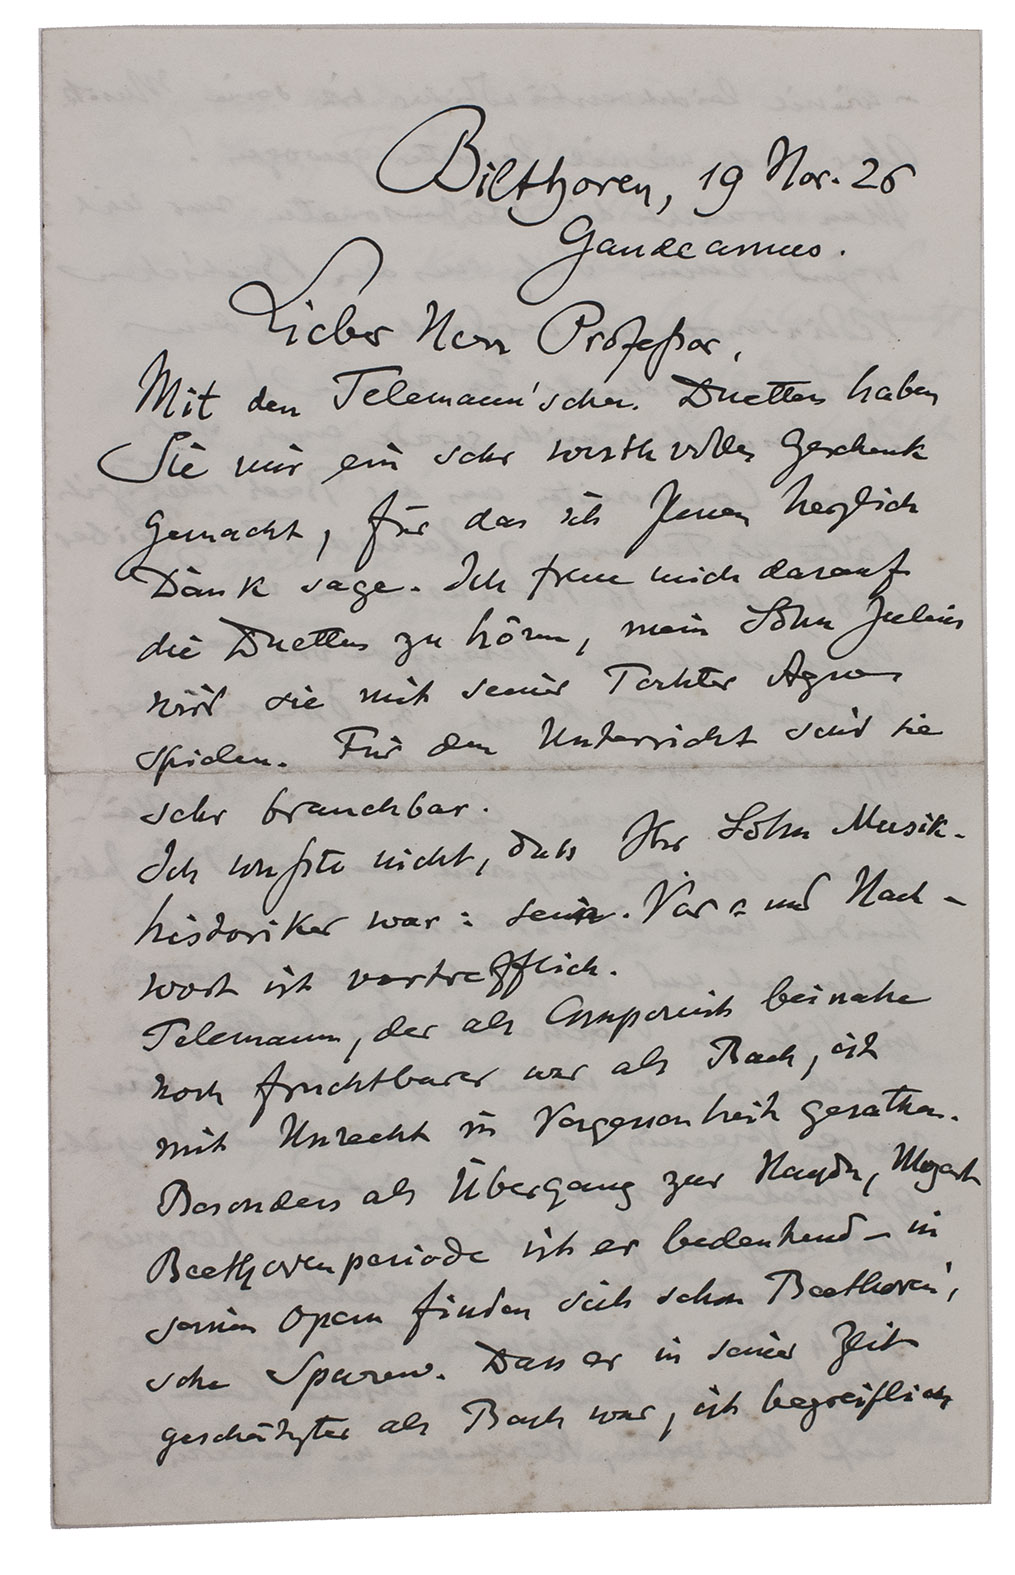 Bilthoven, 19 Nov. 26
Gaudeamus.
Lieber Herr Professor,
Mit den Telemann'schen Duetten haben
Sie mir ein sehr werthvolles Geschenk
gemacht, für das ich Ihnen herzlich
Dank sage. Ich freue mich darauf
die Duetten zu hören, mein Sohn Julius
wird sie mit seiner Tochter Agnes
spielen. Für den Unterricht sind sie
sehr brauchbar.
Ich wußte nicht, dass Ihr Sohn Musik-
historiker war: sein Vor- und Nach-
wort ist vortrefflich.
Telemann, der als Componist beinahe
noch fruchtbarer war als Bach, ist
mit Unrecht in Vergessenheit gerathen.
Besonders als Übergang zur Haydn, Mozart
Beethovenperiode ist er bedeutend – in
seinen Opern finden sich schon Beethoven'
sche Spuren. Dass er in seiner Zeit
geschätzter als Bach war, ist begreiflich